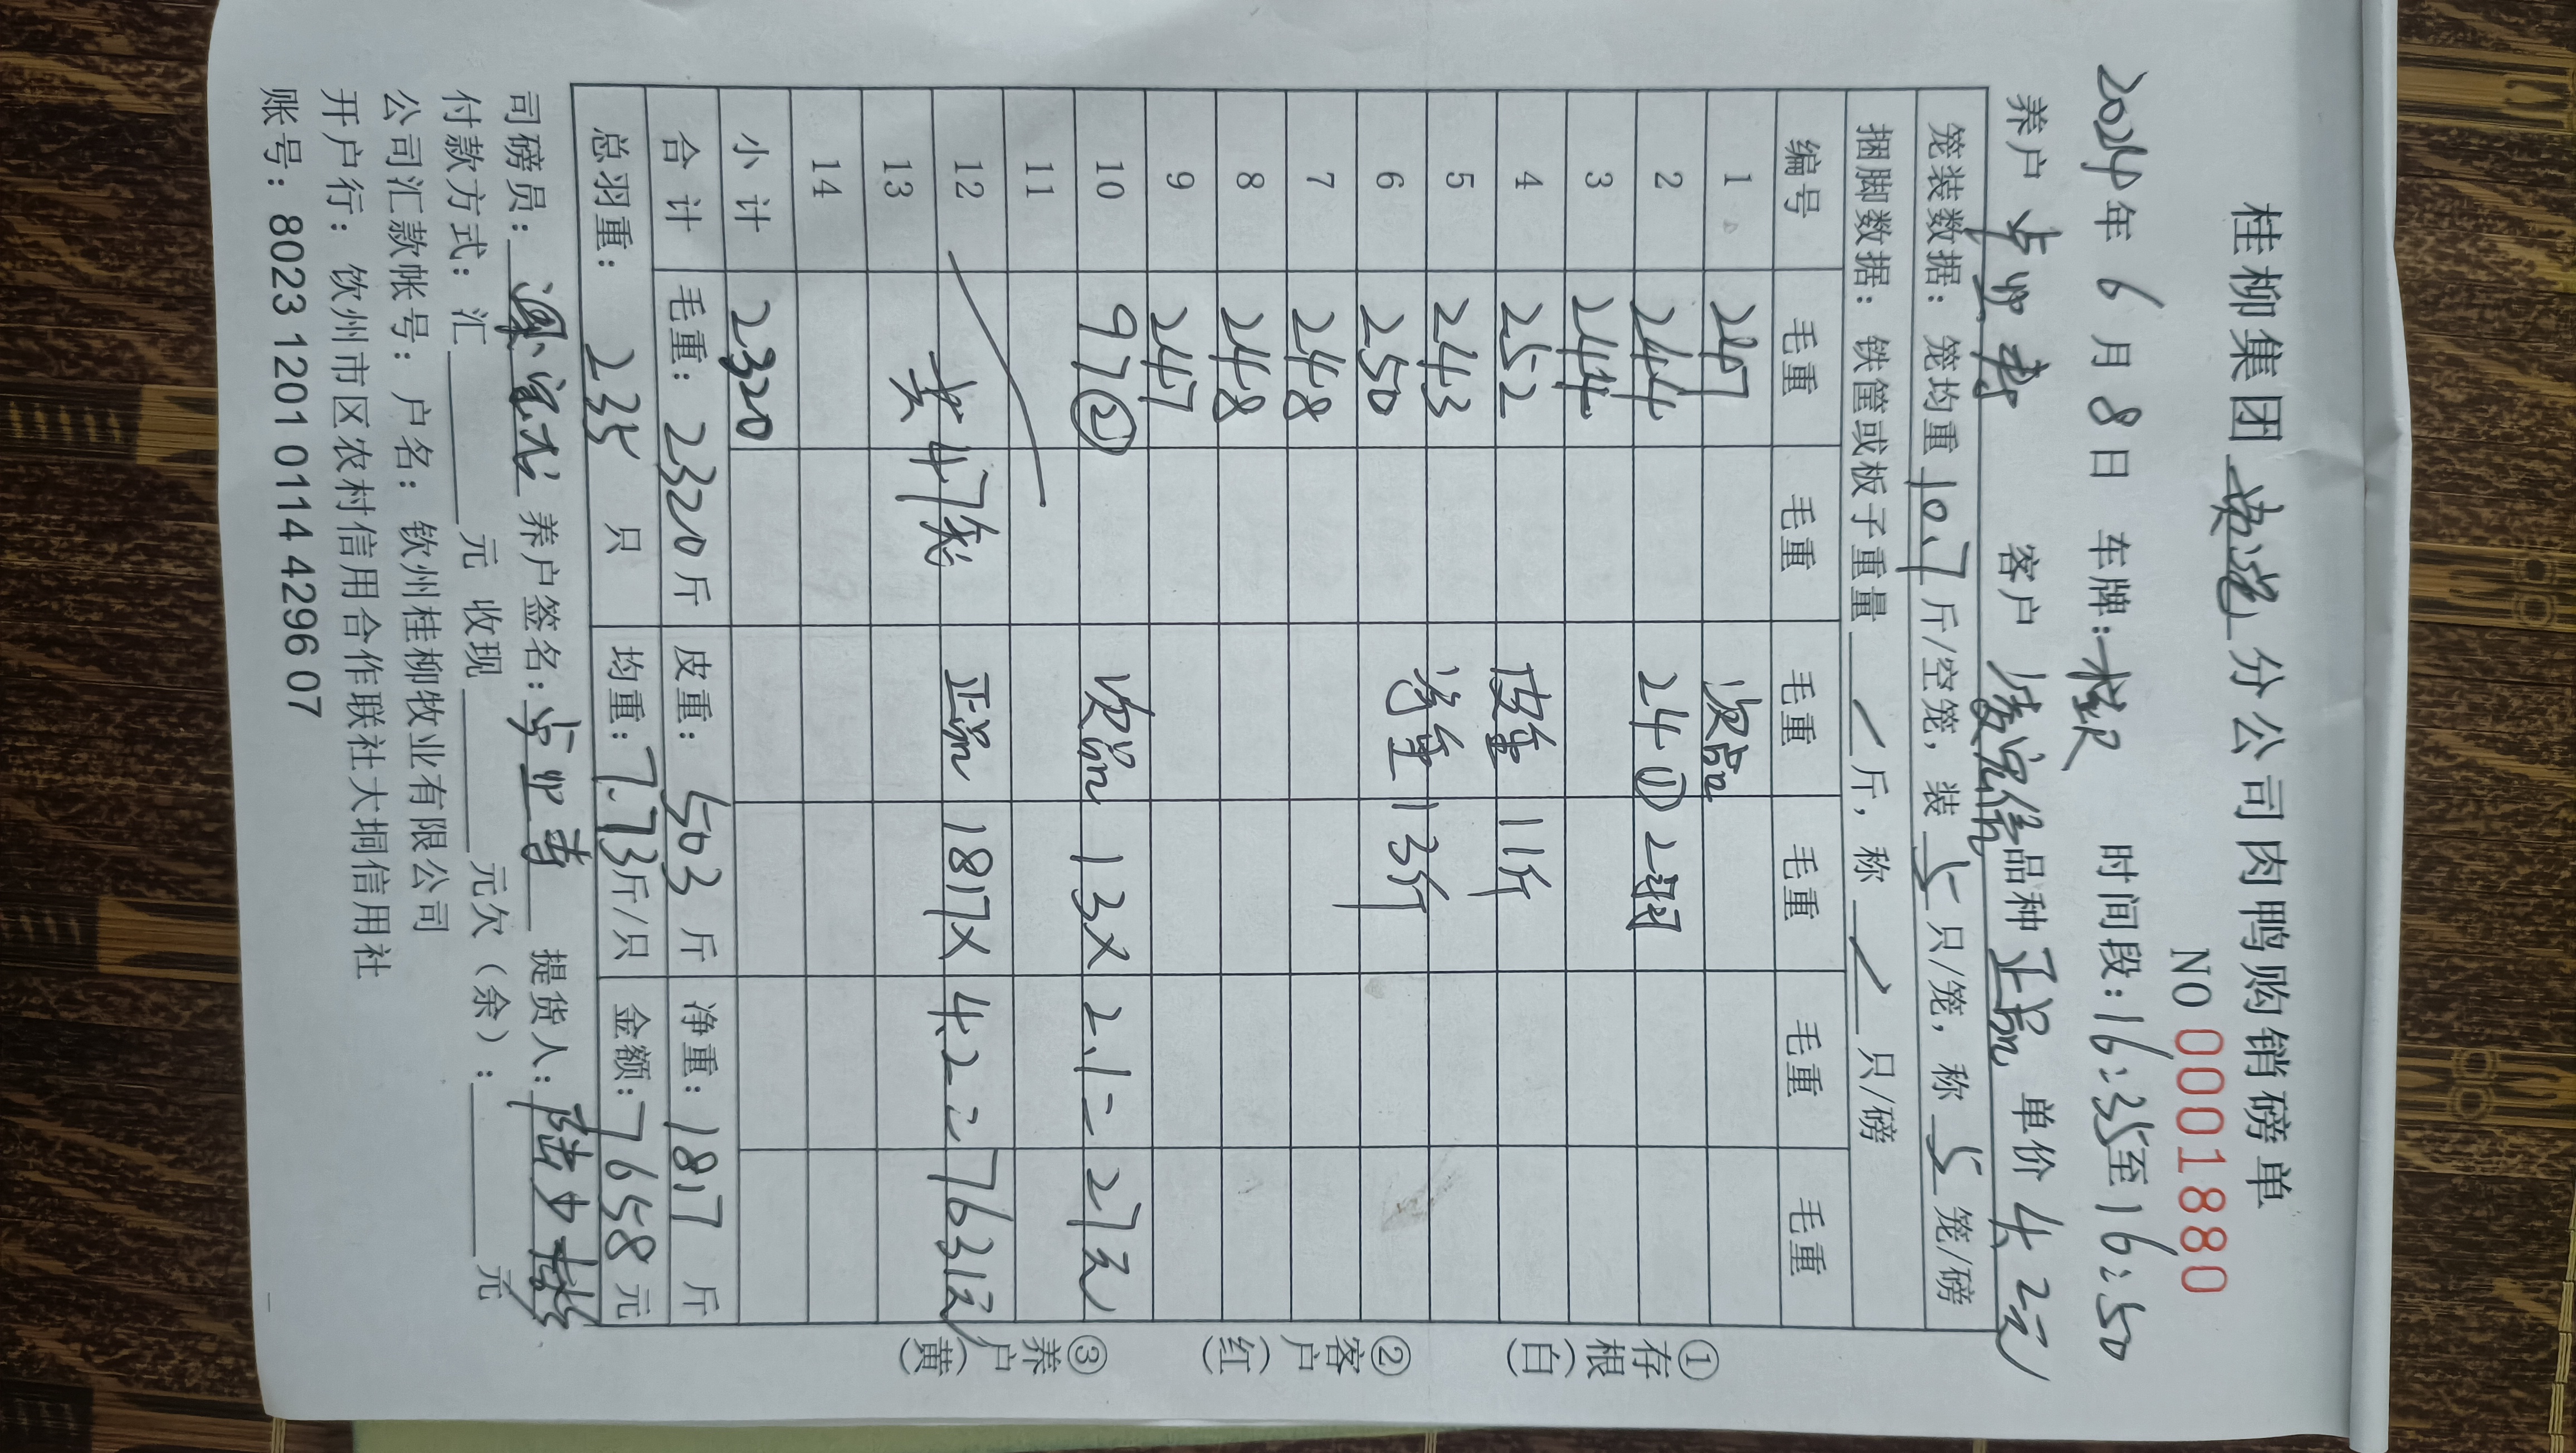 桂柳集团 分公司肉鸭购销磅单
NO 0001880
2024年 6月 8日 车牌: 时间段:16:35至16:50
养户 客户 品种 正品 单价 4.2元
笼装数据:笼均重 10.7 斤/空笼,装 5 只/笼,称 5 笼/磅
捆脚数据:铁筐或板子重量 / 斤,称 / 只/磅
编号 毛重 毛重 毛重 毛重 毛重 毛重
1 247 次品
2 244 24① 2羽
3 244
4 252 皮重 11斤
5 243 净重 13斤
6 250
7 248
8 248
9 247
10 97② 次品 13×2.1=27元
11
12 共47笼 正品 1817×4.2=7631元
13
14
小计 2320
合计 毛重:2320斤 皮重:503斤 净重:1817斤
总羽重:235 只 均重:7.73斤/只 金额:7658元
司磅员: 养户签名: 提货人:
付款方式:汇 元 收现 元欠(余): 元
公司汇款帐号:户名:钦州桂柳牧业有限公司
开户行:钦州市区农村信用合作联社大垌信用社
账号:8023 1201 0114 4296 07
①存根(白) ②客户(红) ③养户(黄)